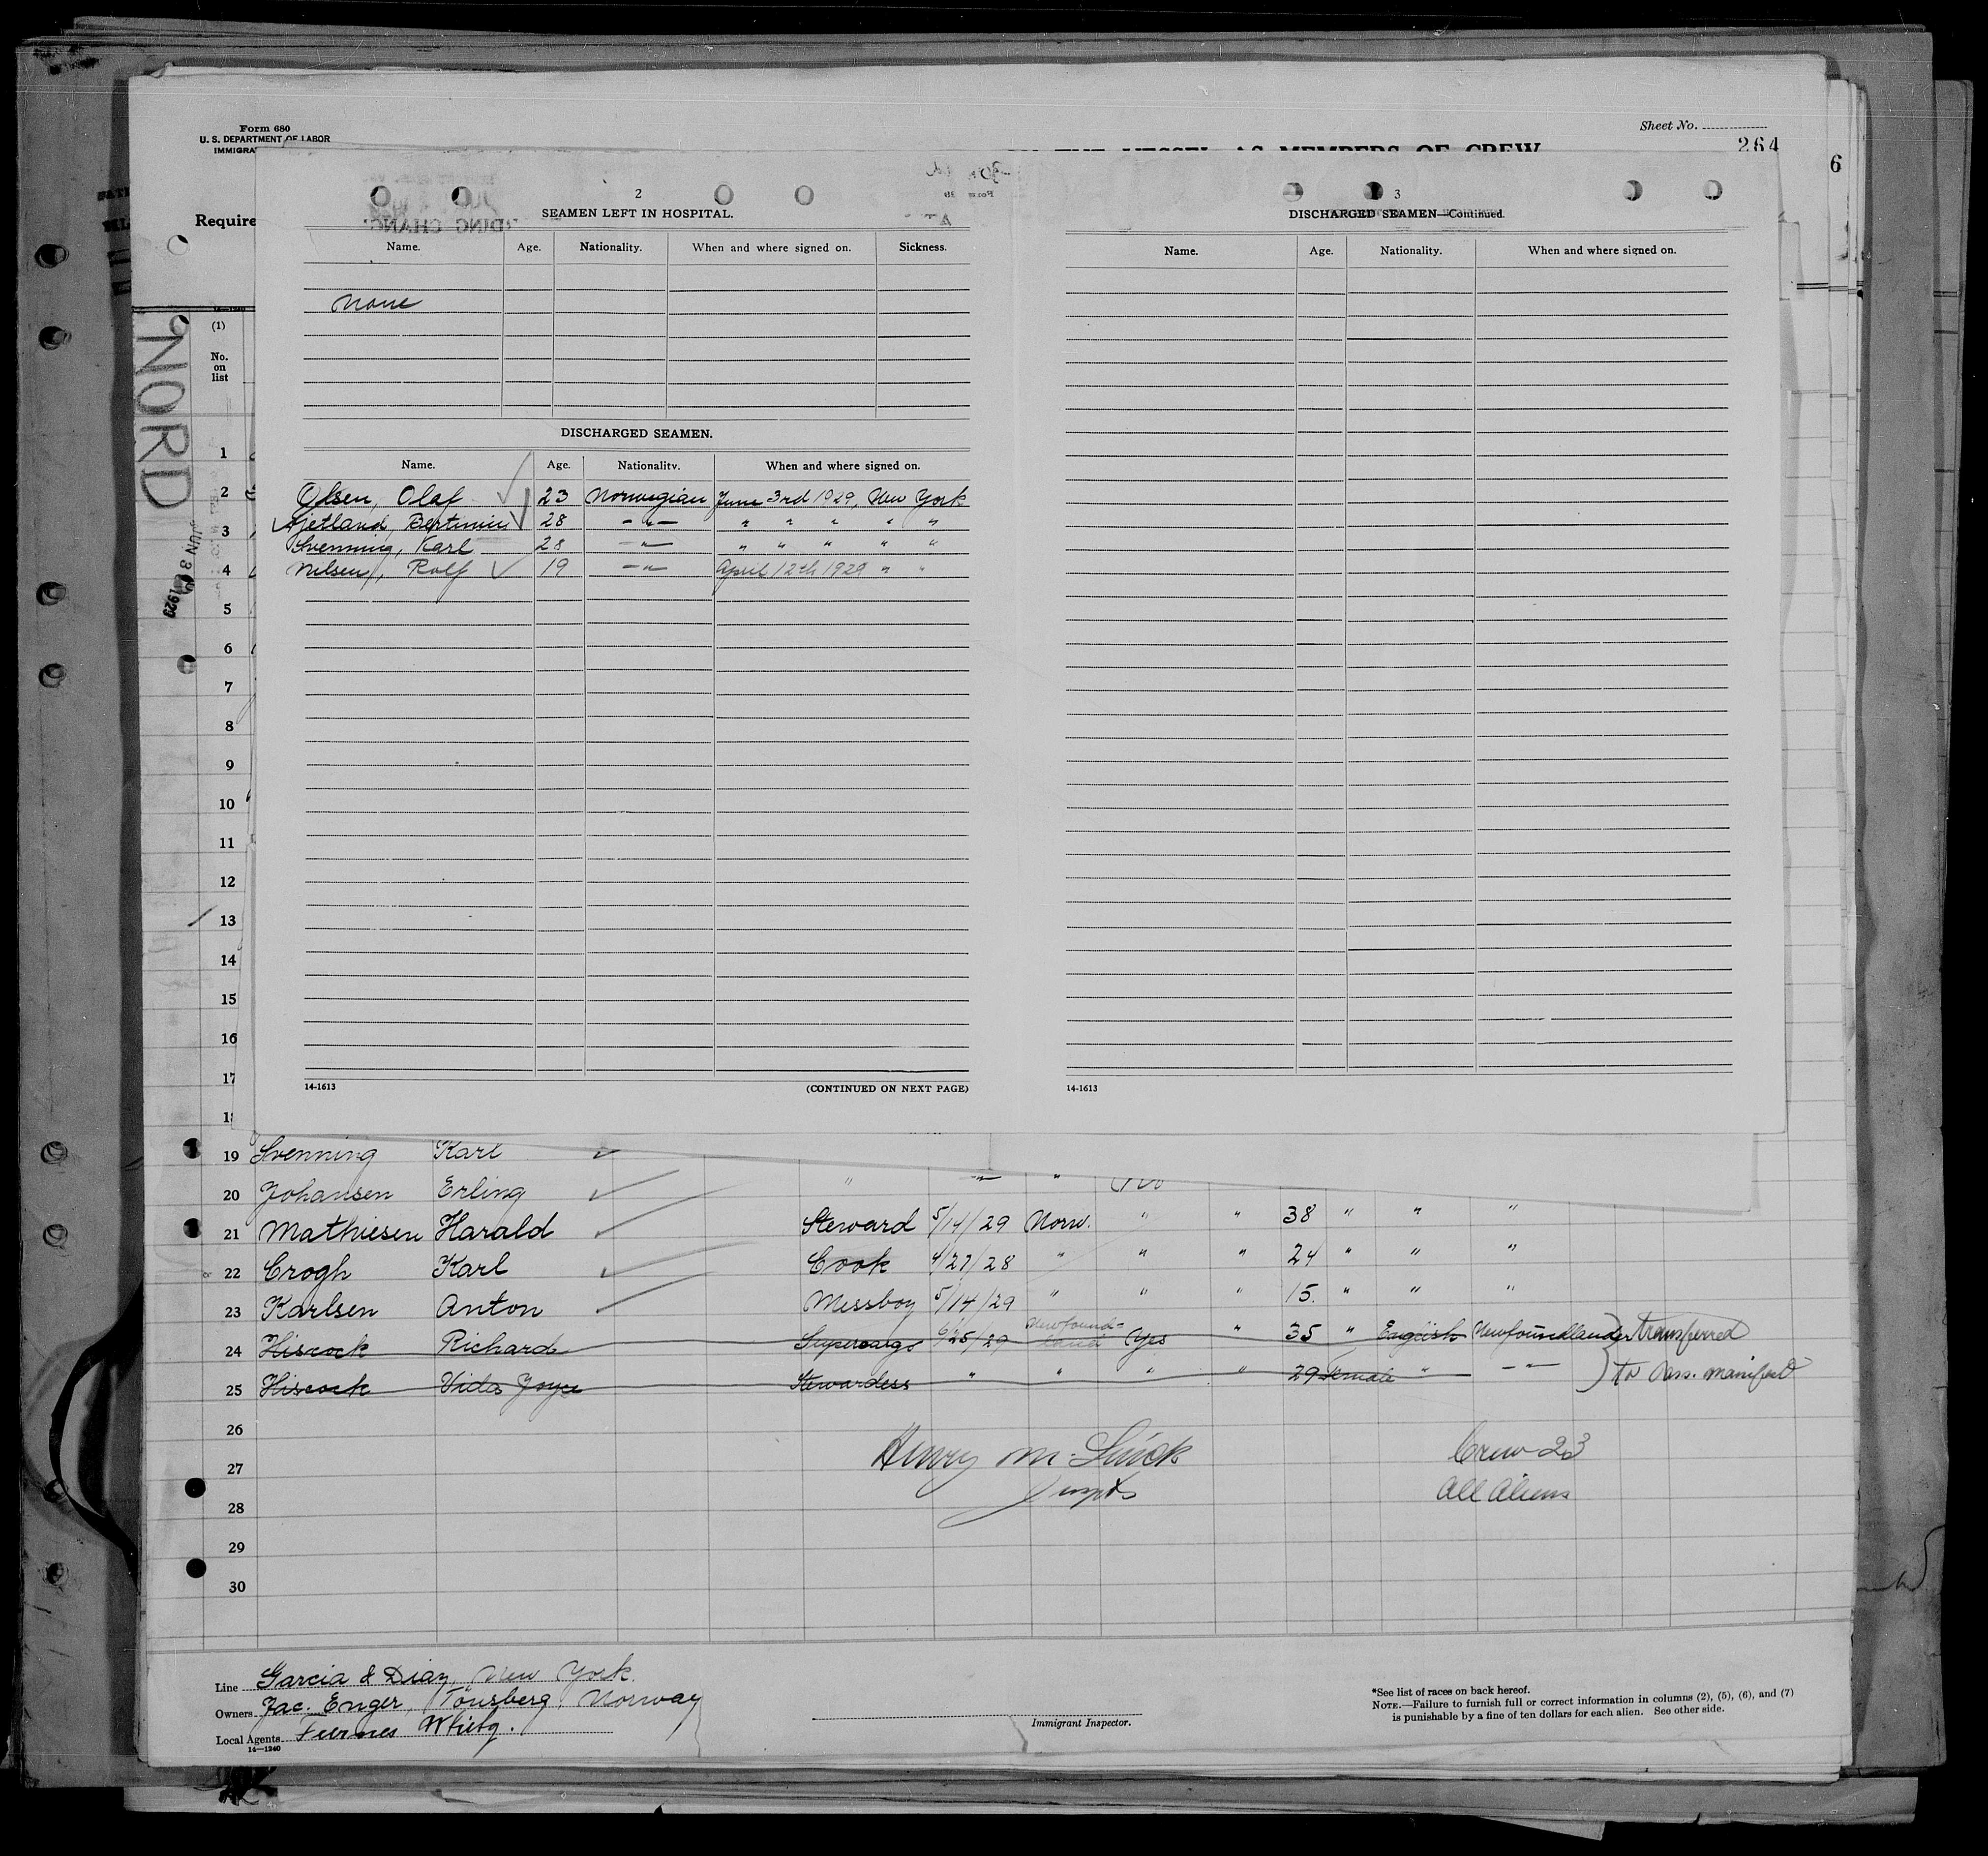 Form 680
U. S. DEPARTMENT OF LABOR
Sheet No.
264
6
Require
NORD
JUN 3 1929
(1)
No.
on
list
2
SEAMEN LEFT IN HOSPITAL.
Name. Age. Nationality. When and where signed on. Sickness.
None
DISCHARGED SEAMEN.
Name. Age. Nationality. When and where signed on.
Olsen, Olaf 23 Norwegian June 3rd 1929, New York
28 -"- " " " " "
Svenning, Karl 28 -"- " " " " "
Nilsen, Rolf 19 -"- April 12th 1929 " "
14-1613 (CONTINUED ON NEXT PAGE)
3
DISCHARGED SEAMEN—Continued.
Name. Age. Nationality. When and where signed on.
14-1613
1
2
3
4
5
6
7
8
9
10
11
12
13
14
15
16
17
19 Svenning Karl
20 Johansen Erling " -"- "
21 Mathiesen Harald Steward 5/14/29 Norw. " " 38 " " "
22 Crogh Karl Cook 4/27/28 " " " 24 " " "
23 Karlsen Anton Messboy 5/14/29 " " " 15. " " "
24 Hiscock Richard Supercargo 6/25/29 Newfound-land Yes " 35 " English Newfoundlander transferred
25 Hiscock Vida Joyce Stewardess " " " " 29 Female " -"- to manifest
26
27
28
29
30
Henry M.
Crew 23
All Aliens
Line Garcia & Diaz, New York.
Owners Jac. Enger, Tönsberg, Norway
Local Agents Furness Withy.
14—1240
Immigrant Inspector.
*See list of races on back hereof.
NOTE.—Failure to furnish full or correct information in columns (2), (5), (6), and (7)
is punishable by a fine of ten dollars for each alien. See other side.